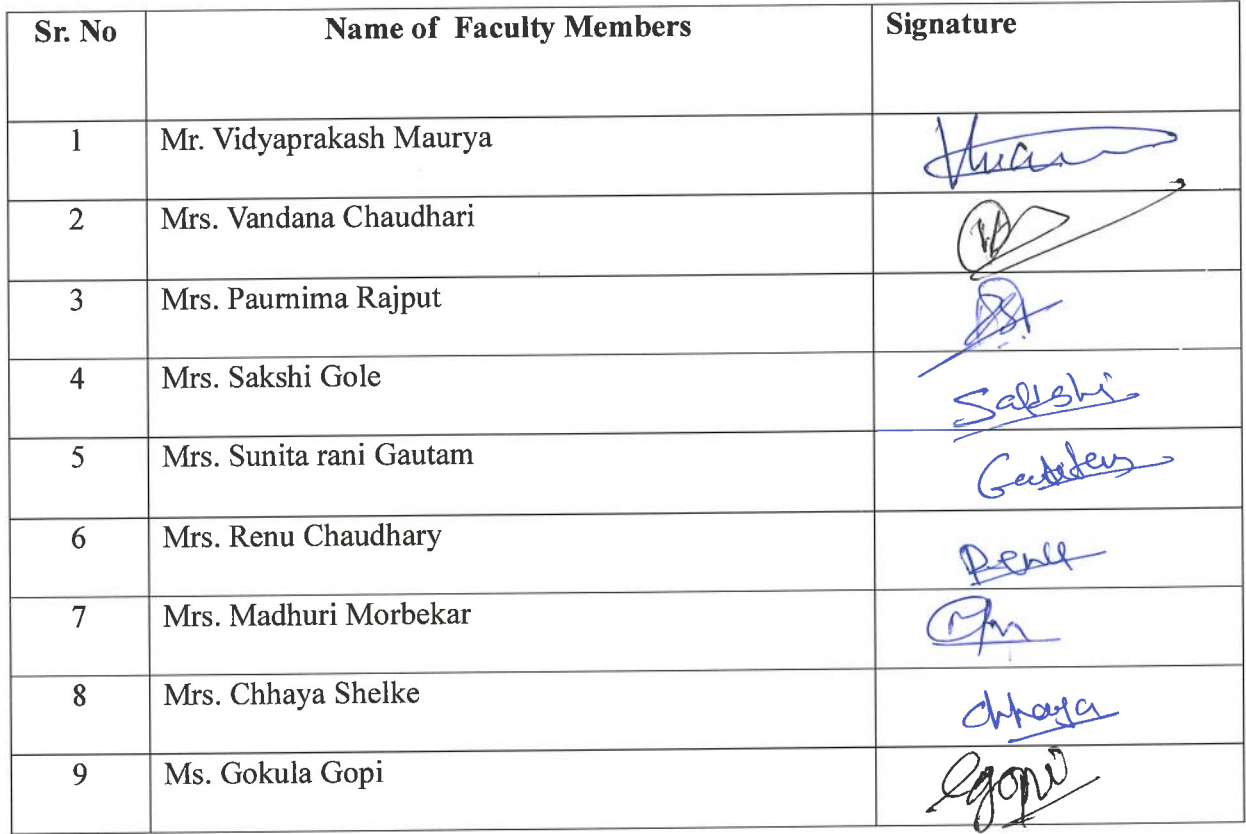 Sr. No Name of Faculty Members Signature
1 Mr. Vidyaprakash Maurya
2 Mrs. Vandana Chaudhari
3 Mrs. Paurnima Rajput
4 Mrs. Sakshi Gole Sakshi
5 Mrs. Sunita rani Gautam
6 Mrs. Renu Chaudhary Renu
7 Mrs. Madhuri Morbekar
8 Mrs. Chhaya Shelke Chhaya
9 Ms. Gokula Gopi Ggopi